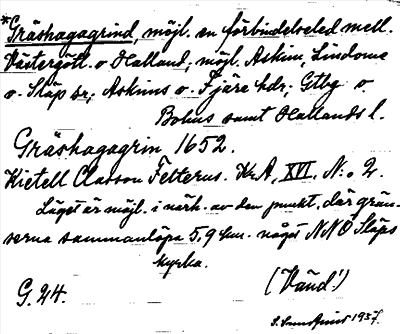 *Gräshagagrind, möjl. en förbindelseled mell.
Västergötl. o Halland; möjl. Askim, Lindome
o. Släp sr; Askims o. Fjäre hdr; Gtbg o.
Bohus samt Hallands l.
Gräshagagrin 1652.
Kietell Classon Felterus. Kr.A, XVI, N:o 2.
Läget är möjl. i närh. av den punkt, där grän-
serna sammanlöpa 5,9 km. något NNO Släps
kyrka.
(Vänd!)
G. 24.
1937.